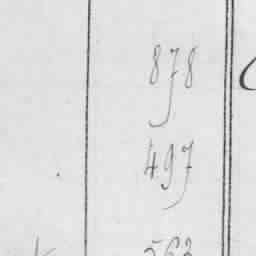 878
497